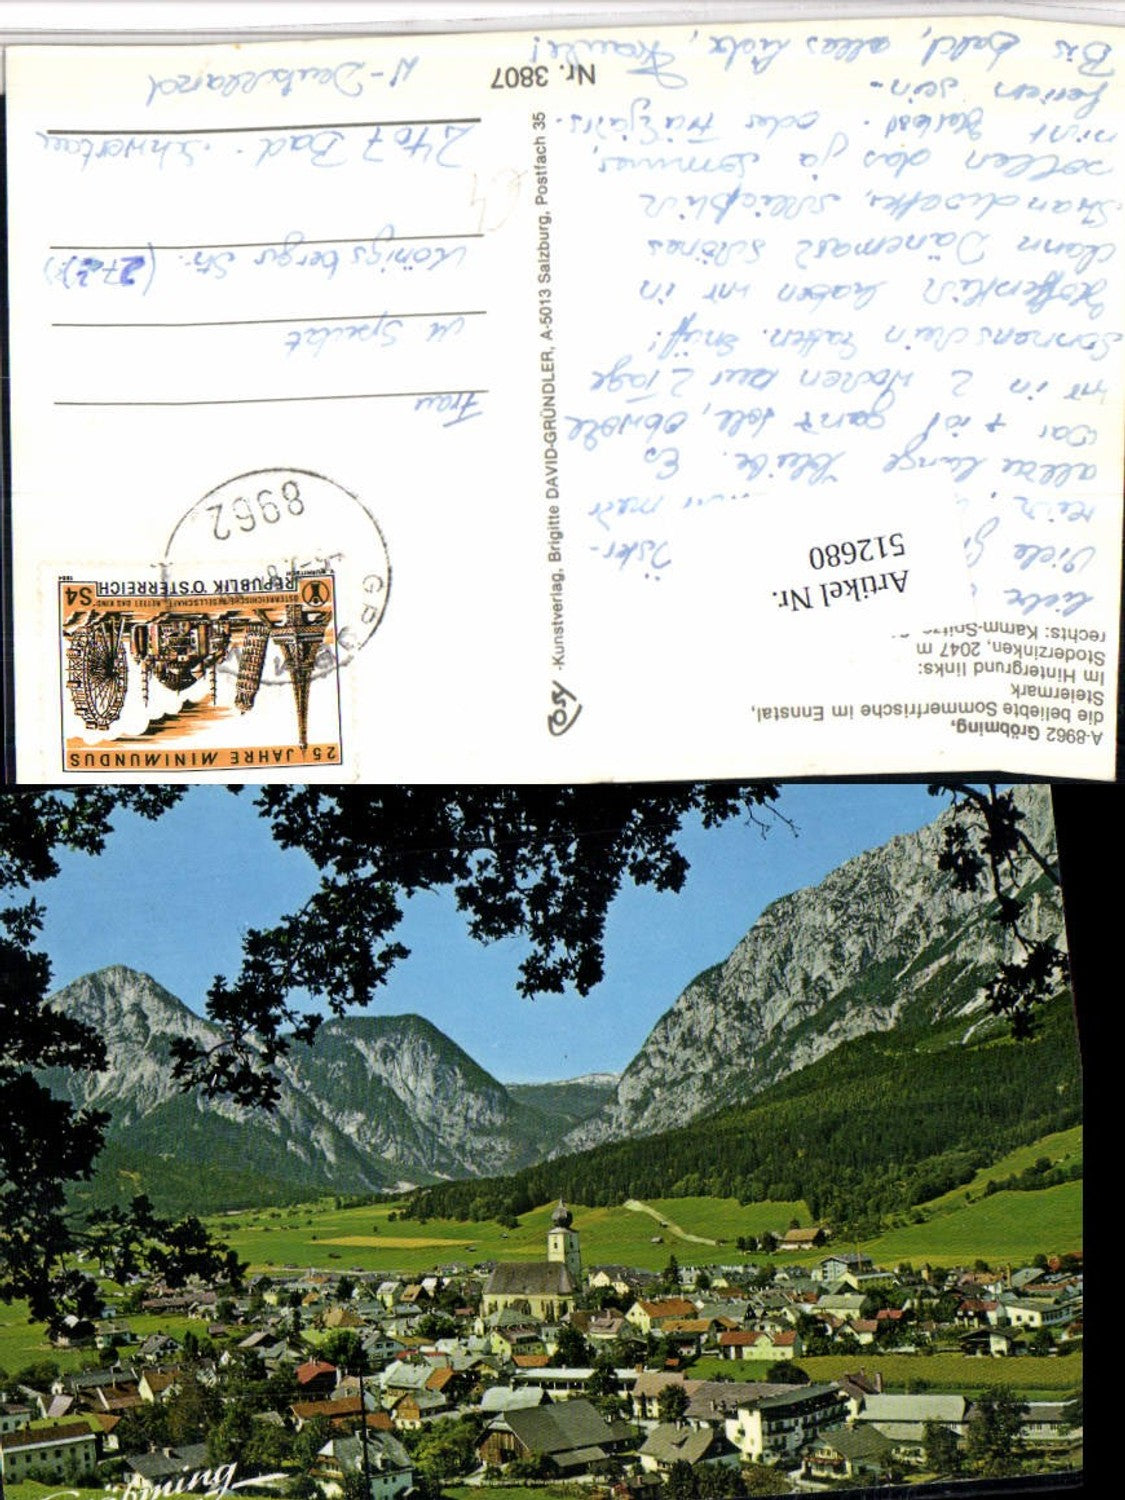 A-8962 Gröbming,
die beliebte Sommerfrische im Ennstal,
Steiermark
Im Hintergrund links:
Stoderzinken, 2047 m
rechts: Kamm-Spitze
Artikel Nr.
512680
Liebe
Viele
allzu lange bleibe. Es
war toll, obwohl
wir in 2 Wochen nur 2 Tage
Sonnenschein hatten. Snüff!
Hoffentlich haben wir in
dann Dänemark schönes
Strandwetter, schließlich
sollen das ja Sommer,
nicht Herbst- oder Frühjahrs-
ferien sein.
Bis bald, alles Liebe,
Cosy
-Kunstverlag, Brigitte DAVID-GRÜNDLER, A-5013 Salzburg, Postfach 35
Nr. 3807
25 JAHRE MINIMUNDUS
ÖSTERREICHISCHE GESELLSCHAFT „RETTET DAS KIND“
REPUBLIK ÖSTERREICH
S4
1984
8962
Frau
Königsberger Str.
2407 Bad Schwartau
W-Deutschland
Gröbming